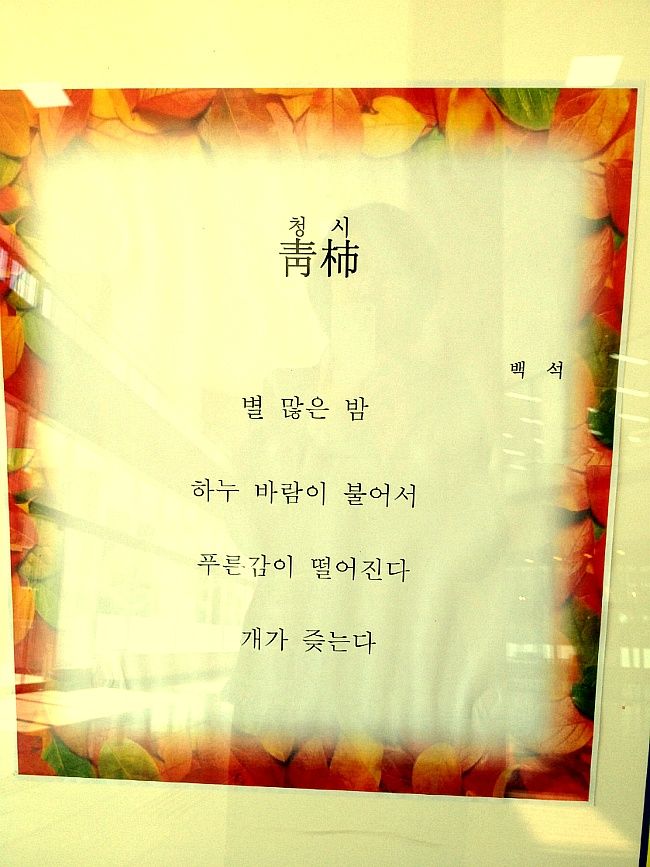 청 시
靑柿
백 석
별 많은 밤
하누 바람이 불어서
푸른감이 떨어진다
개가 즞는다